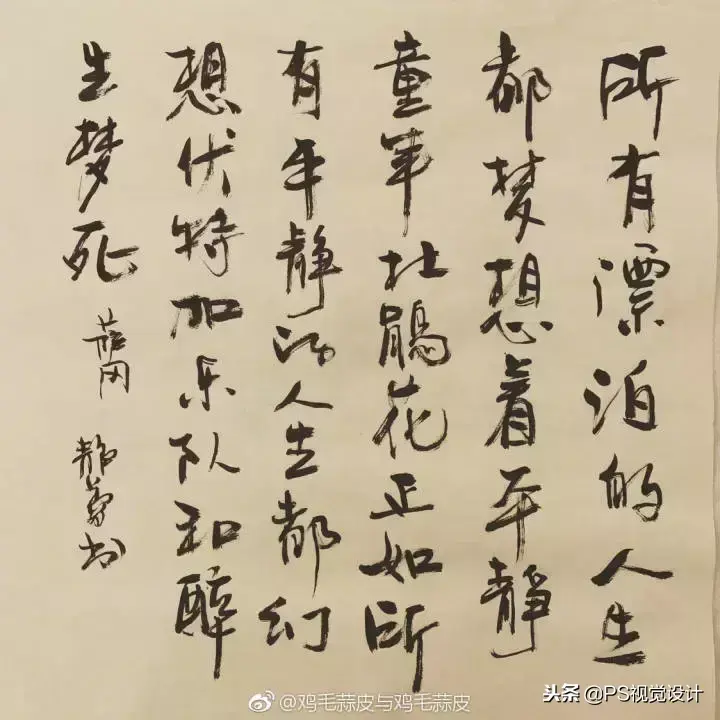 所有漂泊的人生
都梦想着平静
童年杜鹃花正如所
有平静的人生都幻
想伏特加乐队和醉
生梦死
书
@鸡毛蒜皮与鸡毛蒜皮
头条 @PS视觉设计